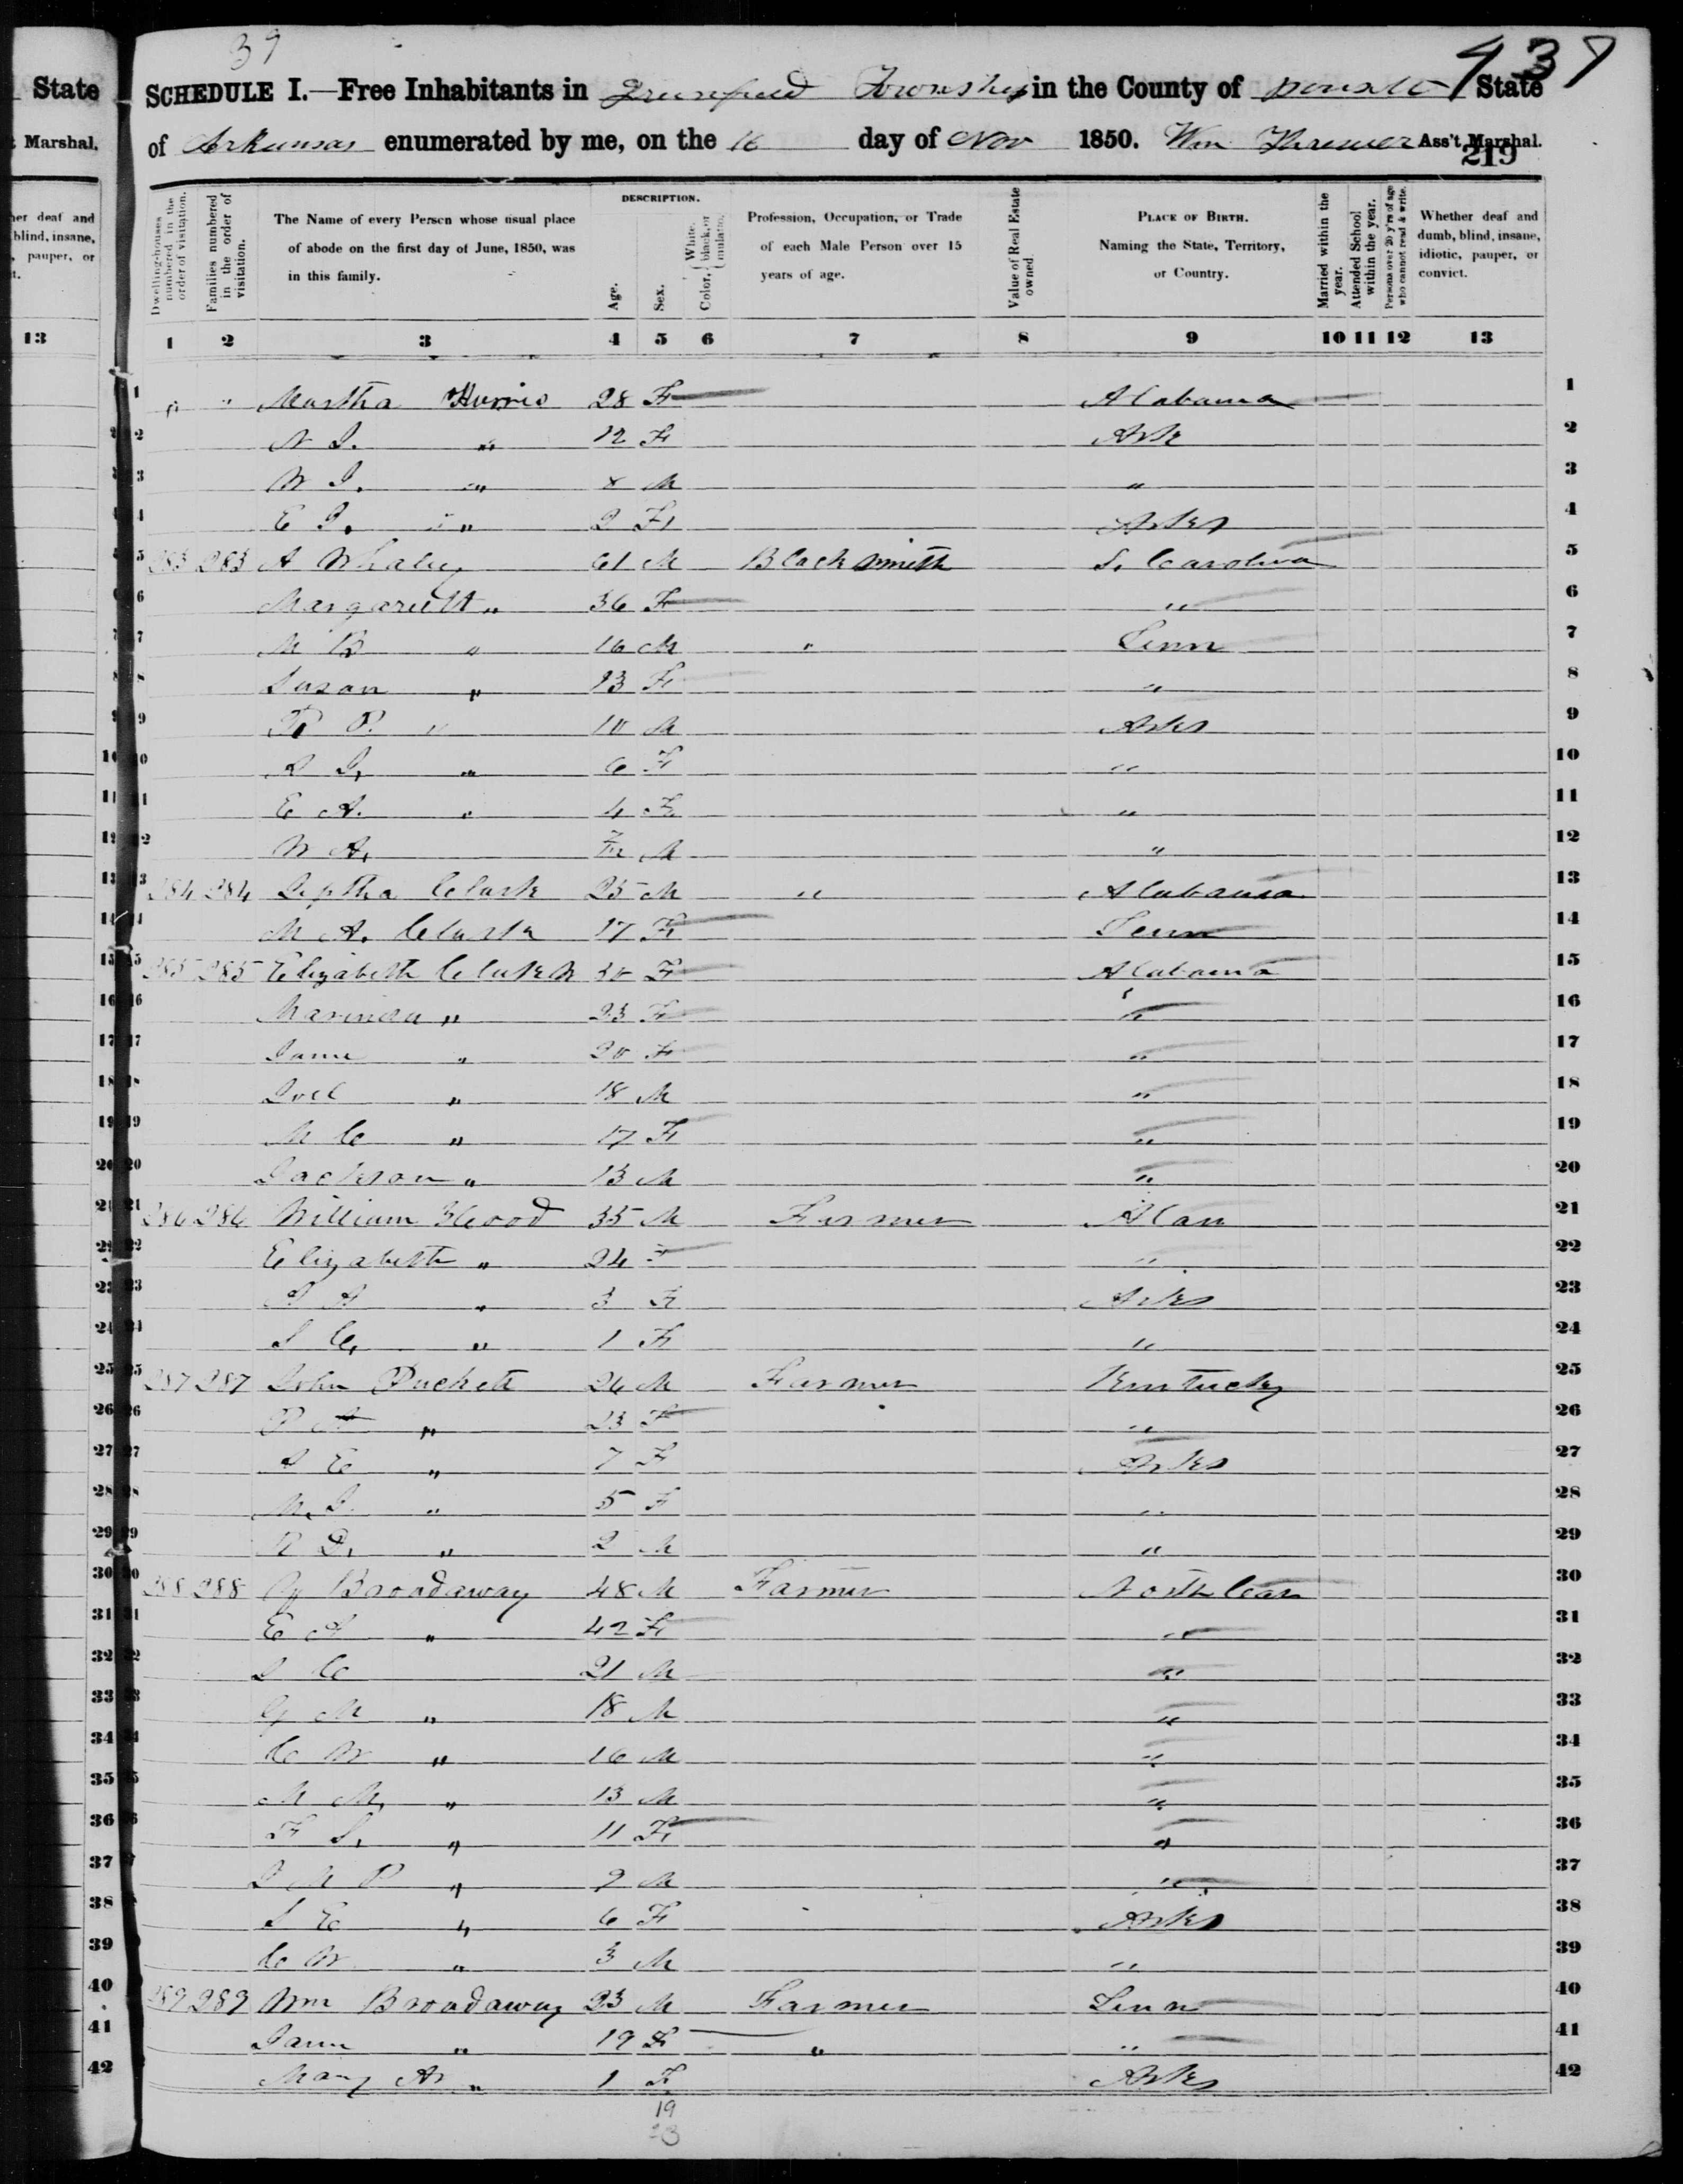 39
437
State SCHEDULE I.—Free Inhabitants in Greenfield Township in the County of State
Marshal. of Arkansas enumerated by me, on the 16 day of Nov 1850. Wm Ass't Marshal.
219
Dwelling-houses numbered in the order of visitation.
Families numbered in the order of visitation.
The Name of every Person whose usual place of abode on the first day of June, 1850, was in this family.
DESCRIPTION.
Age.
Sex.
Color, { White, black, or mulatto.
Profession, Occupation, or Trade of each Male Person over 15 years of age.
Value of Real Estate owned.
PLACE OF BIRTH. Naming the State, Territory, or Country.
Married within the year.
Attended School within the year.
Persons over 20 y'rs of age who cannot read & write.
Whether deaf and dumb, blind, insane, idiotic, pauper, or convict.
13 1 2 3 4 5 6 7 8 9 10 11 12 13
1 " " Martha Harris 28 F Alabama 1
2 N J. " 12 F Ark 2
3 W J. " 8 M " 3
4 E J. " 2 F Arks 4
5 283 283 A Whaley 61 M Blacksmith S. Carolina 5
6 Margarett " 36 F " 6
7 M B " 16 M " Tenn 7
8 Susan " 13 F " 8
9 R P. " 10 M Arks 9
10 A J, " 6 F " 10
11 E A. " 4 F " 11
12 W A, M " 12
13 284 284 Jeptha Clark 25 M " Alabama 13
14 M A. Clark 17 F Tenn 14
15 285 285 Elizabeth Clark 30 F Alabama 15
16 Marinda " 23 F " 16
17 Jane " 20 F " 17
18 Joel " 18 M " 18
19 M C " 17 F " 19
20 Jackson " 13 M " 20
21 286 286 William Hood 35 M Farmer Alan 21
22 Elizabeth " 24 F " 22
23 A " 3 F Arks 23
24 S C, " 1 F " 24
25 287 287 John Puckett 26 M Farmer Kentucky 25
26 P A " 23 F " 26
27 S E " 7 F Arks 27
28 M. J. " 5 F " 28
29 R D, " 2 M " 29
30 288 288 G Broadaway 48 M Farmer North Car 30
31 E A " 42 F " 31
32 J C 21 M " 32
33 G M " 18 M " 33
34 C W " 16 M " 34
35 M M, " 13 M " 35
36 F S, " 11 F " 36
37 J M P " 9 M " 37
38 S E " 6 F Arks 38
39 C W " 3 M " 39
40 289 289 Wm Broadaway 23 M Farmer Tenn 40
41 Jane " 19 F " " 41
42 Mary A. " 1 F Arks 42
19
23